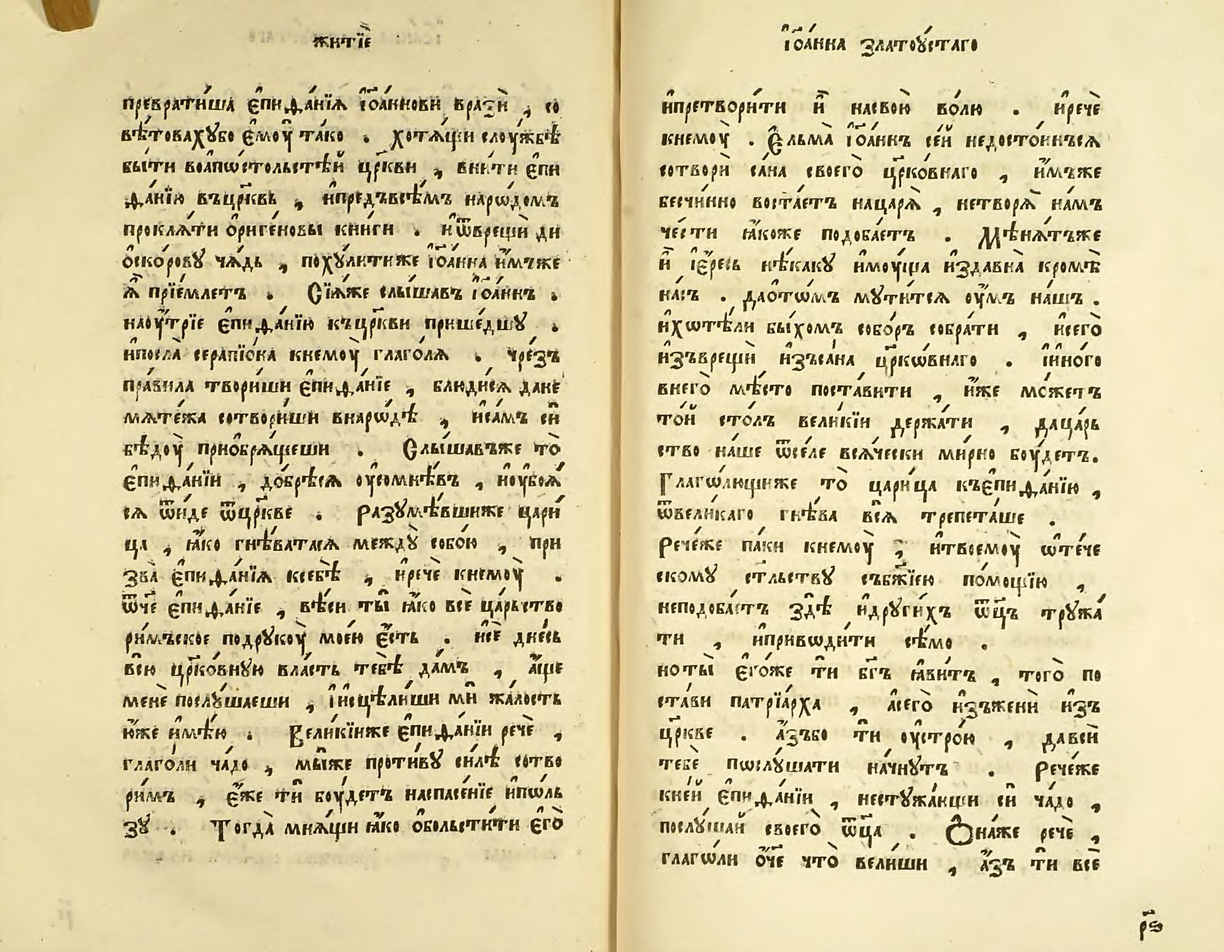 житїѐ
превратѝша є҆пифа́нїѧ і҆ѡа́ннови вразѝ , со
вѣ́товахꙋбо є҆моꙋ̀ та́ко . хотѧ́щи слоу́жбѣ
бы́ти воапѡ́столстѣ́й цр҃кви , вни́ти є҆пи
фа́нїю въцр҃квь , и҆предъвсѣ́мъ наро́домъ
проклѧ́ти ѻ҆риге́новы кни́ги . и҆ѿврещѝ ди
ѻ҆ско́ровꙋ ча́дь , похꙋли́тиже і҆ѡа́нна и҆́мъже
ѧ҆̀ прїе́млетъ . Сїѧ́же слы́шавъ і҆ѡа́ннъ .
наоу́трїе є҆пифа́нїю къцр҃кви прише́дшꙋ .
и҆посла̀ серапїо́на кнемоу̀ глаго́лѧ . чре́зъ
пра́вила твори́ши є҆пифа́нїе , блюди́сѧ дане
мѧте́жа сотвори́ши внаро́дѣ , и҆са́мъ сѝ
бѣдоу̀ приѡбрѧ́щеши . Слы́шавъже то̀
є҆пифа́нїи , до́брѣсѧ оу҆сомнѣ́въ , и҆оу҆боѧ́
сѧ ѿи́де ѿцр҃кве . разꙋмѣ́вшиже цари́
ца , ꙗ҆́ко гнѣ́ватасѧ междꙋ̀ собо́ю , при
зва̀ є҆пифа́нїѧ ксебѣ̀ , и҆речѐ кнемоу̀ .
ѿч҃е є҆пифа́нїе , вѣ́си ты̀ ꙗ҆́ко всѐ ца́рьство
ри́мъское подрꙋко́у мое́ю є҆́сть . и҆сѐ дне́сь
всю̀ цр҃ко́внꙋю вла́сть тебѣ̀ да́мъ , а҆́ще
менѐ послꙋ́шаеши , і҆и҆сцѣли́ши мѝ жа́лость
ю҆́же и҆мѣ́ю . Вели́кїиже є҆пифа́нїи речѐ ,
глаго́ли ча́до , мы́же проти́вꙋ си́лѣ сотво
ри́мъ , є҆́же тѝ боу́детъ наспасе́нїе и҆по́ль
зꙋ . Тогда̀ мнѧ́щи ꙗ҆́ко ѻ҆больсти́ти є҆го̀
і҆ѡа́нна златоꙋ́стаго
и҆претвори́ти и҆̀ насвою̀ во́лю . и҆речѐ
кнемоу̀ . Є҆льма̀ і҆ѡа́ннъ се́й недосто́инъсѧ
сотворѝ са́на своего̀ цр҃ко́внаго , и҆́мъже
бесчи́нно воста́етъ нацарѧ̀ , нетворѧ̀ на́мъ
че́сти ꙗ҆́коже подоба́етъ . Мнѣ́нѧтъже
и҆̀ і҆є҆́ресь нѣ́какꙋ и҆моу́ща и҆здавна̀ кромѣ̀
на́съ . даѻто́мъ мꙋти́тсѧ оу҆́мъ на́шъ .
и҆хѡтѣ́ли бы́хомъ собо́ръ собра́ти , и҆сего̀
и҆зъврещѝ и҆зъса́на цр҃кѡ́внаго . і҆и҆но́го
внего̀ мѣ́сто поста́вити , и҆́же мо́жетъ
то́й сто́лъ вели́кїи держа́ти , даца́рь
ство на́ше ѿсе́ле всѧ́чески ми́рно боу́детъ.
Глаго́лющиже то̀ цари́ца къє҆пифа́нїю ,
ѿвели́каго гнѣ́ва всѧ̀ трепета́ше .
Рече́же па́ки кнемоу̀ ; и҆твоемоу̀ ѡ҆те́че
скомꙋ ст҃льствꙋ събж҃їею по́мощїю ,
неподоба́етъ здѣ̀ и҆дрꙋги́хъ ѿц҃ъ трꙋжа́
ти , и҆привѡди́ти сѣ́мо .
ноты̀ є҆го́же тѝ бг҃ъ ꙗ҆ви́тъ , того̀ по
ста́ви патрїа́рха , асего̀ и҆зъженѝ и҆зъ
цр҃кве . а҆́зъбо тѝ оу҆стро́ю , давсѝ
тебѐ пѡслꙋ́шати начнꙋ́тъ . Рече́же
кне́й є҆пифа́нїи , нестꙋжа́ющи сѝ ча́до ,
послꙋ́шай своего̀ ѿц҃а . Ѻ҆на́же речѐ ,
глаго́ли ѻ҆́ч҃е что̀ вели́ши , а҆́зъ тѝ всѐ
р҃ѕ